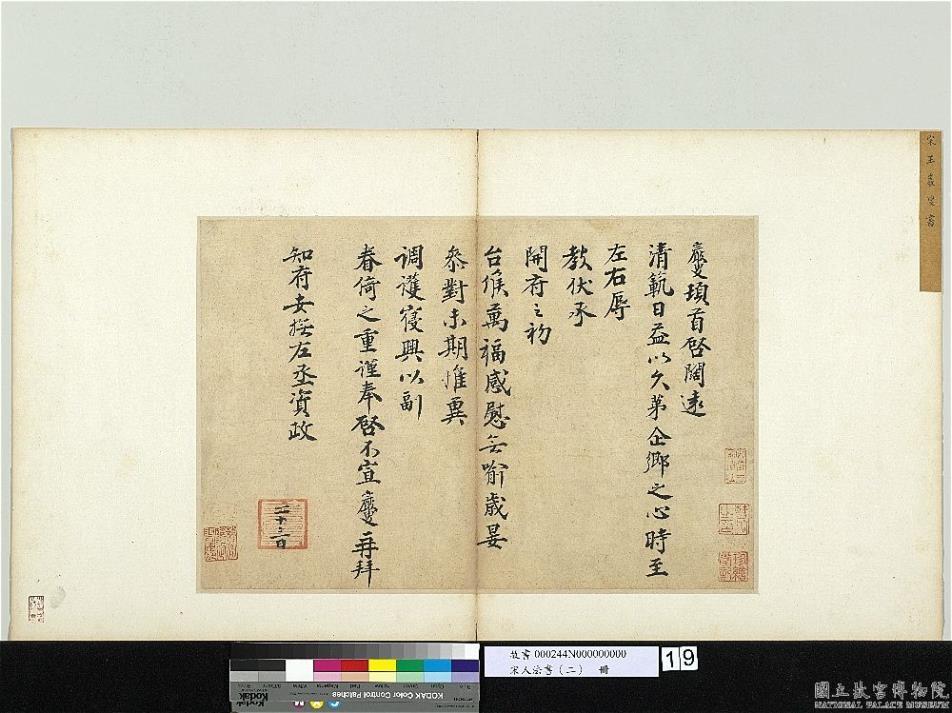 宋王巖叟書
巖叟頓首啓闊遠
清範日益以久第企鄉之心時至
左右辱
教伏承
開府之初
台候萬福感慰無喻歲晏
參對未期惟冀
調護寢興以副
眷倚之重謹奉啓不宣巖叟再拜
知府安撫左丞資政
二十三日
故書000244N000000000
宋人法書(二) 冊
19
KODAK Color Control Patches
Kodak
國立故宮博物院
NATIONAL PALACE MUSEUM